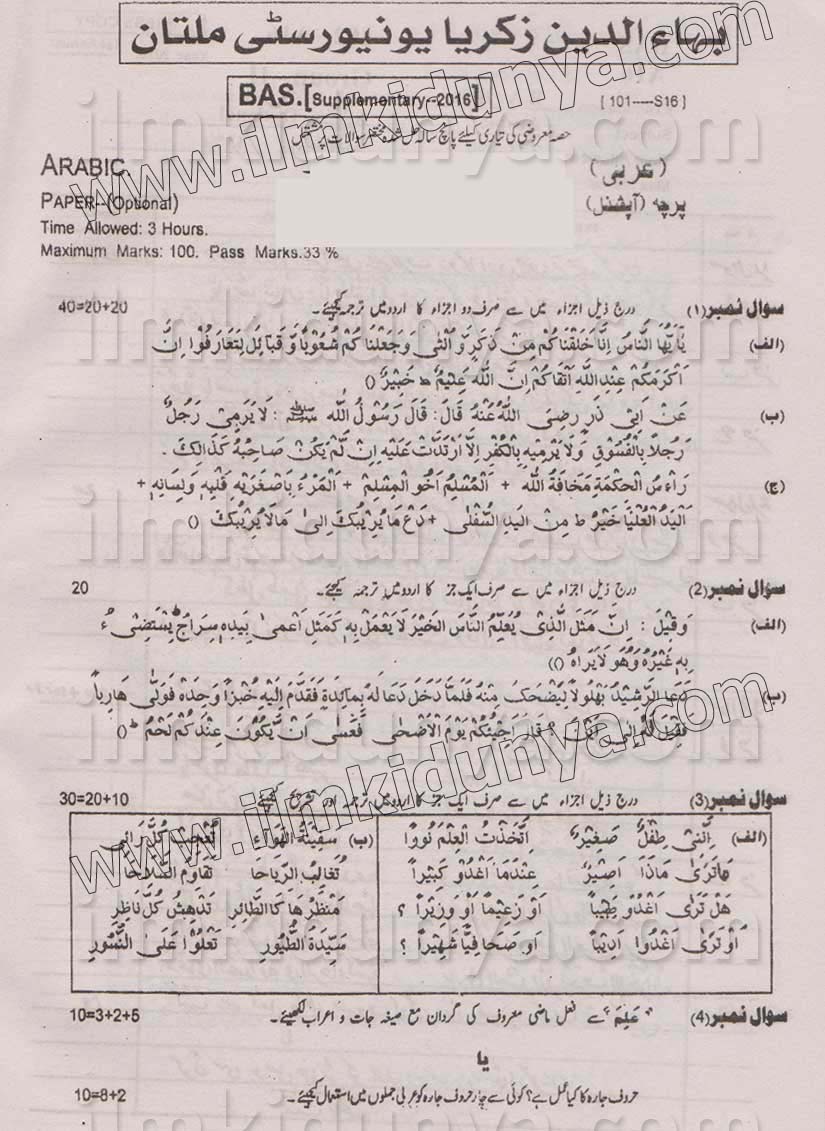 بہاء الدین زکریا یونیورسٹی ملتان
BAS.[Supplementary--2016]
[ 101-----S16 ]
حصہ معروضی کی تیاری کیلئے پانچ سالہ حل شدہ مختصر سوالات پر مشتمل
ARABIC.
(عربی)
PAPER--(Optional)
پرچہ (آپشنل)
Time Allowed: 3 Hours.
Maximum Marks: 100. Pass Marks.33 %
سوال نمبر(۱) درج ذیل اجزاء میں سے صرف دو اجزاء کا اردو میں ترجمہ کیجئے۔ 40=20+20
(الف) يٰٓاَيُّهَا النَّاسُ اِنَّا خَلَقْنَاكُمْ مِنْ ذَكَرٍ وَّ اُنْثٰى وَجَعَلْنَا كُمْ شُعُوْبًا وَّ قَبَائِلَ لِتَعَارَفُوْا اِنَّ
اَكْرَمَكُمْ عِنْدَ اللّٰهِ اَتْقَاكُمْ اِنَّ اللّٰهَ عَلِيْمٌ ط خَبِيْرٌ ()
(ب) عَنْ اَبِىْ ذَرٍ رَضِىَ اللّٰهُ عَنْهُ قَالَ: قَالَ رَسُوْلُ اللّٰه ﷺ : لَا يَرْمِىْ رَجُلٌ
رَجُلًا بِالْفُسُوْقِ وَلَا يَرْمِيْهِ بِالْكُفْرِ اِلَّا ارْتَدَّتْ عَلَيْهِ اِنْ لَّمْ يَكُنْ صَاحِبُهٗ كَذَالِكَ ۔
(ج) رَاْءسُ الْحِكْمَةِ مَخَافَةُ اللّٰه + اَلْمُسْلِمُ اَخُو الْمُسْلِمِ + اَلْمَرْءُ بِاَصْغَرَيْهِ قَلْبِهٖ وَلِسَانِهٖ +
اَلْيَدُ الْعُلْيَا خَيْرٌ ط مِنَ الْيَدِ السُّفْلٰى + دَعْ مَا يُرِيْبُكَ اِلىٰ مَالَا يُرِيْبُكَ ()
سوال نمبر(2) درج ذیل اجزاء میں سے صرف ایک جز کا اردو میں ترجمہ کیجئے۔ 20
(الف) وَقِيْلَ : اِنَّ مَثَلَ الَّذِىْ يُعَلِّمُ النَّاسَ الْخَيْرَ لَا يَعْمَلُ بِهٖ كَمَثَلِ اَعْمىٰ بِيَدِهٖ سِرَاجٌ يَسْتَضِىْ ءُ
بِهٖ غَيْرُهٗ وَهُوَ لَا يَرَاهُ ()
(ب) دَعَا الرَّشِيْدُ بَهْلُوْلًا لِيَضْحَكَ مِنْهُ فَلَمَّا دَخَلَ دَعَا لَهٗ بِمَائِدَةٍ فَقَدَّمَ اِلَيْهِ خُبْزًا وَحْدَهٗ فَوَلّٰى هَارِباً
فَقِيْلَ لَهٗ اِلىٰ اَيْنَ ؟ قَالَ اَجِيْئُكُمْ يَوْمَ الْاَضْحٰى فَعَسٰى اَنْ يَّكُوْنَ عِنْدَكُمْ لَحْمٌ ط ()
سوال نمبر(3) درج ذیل اجزاء میں سے صرف ایک جز کا اردو میں ترجمہ اور تشریح کیجئے 30=20+10
(الف) اِنَّنِىْ طِفْلٌ صَغِيْرٌ اِتَّخَذْتُ الْعِلْمَ نُوْرًا
مَا تَرٰى مَاذَا اَصِيْرُ عِنْدَمَا اَغْدُوْ كَبِيْرًا
هَلْ تَرٰى اَغْدُوْ طَبِيْبًا اَوْ زَعِيْمًا اَوْ وَزِيْرًا ؟
اَوْ تَرٰى اَغْدُوْا اَدِيْبًا اَوْ صَحَافِيًّا شَهِيْرًا ؟
(ب) سَفِيْنَةُ الْهَوَاءِ تُعْجِبُ كُلَّ رَائِى
تُغَالِبُ الرِّيَاحَا تُقَاوِمُ الْمَلَّاحَا
مَنْظَرُ هَا كَا الطَّائِرِ تُدْهِشُ كُلَّ نَاظِرِ
سَيِّدَةُ الطُّيُوْرِ تَعْلُوْا عَلىَ النُّسُوْرِ
سوال نمبر(4) "عَلِمَ" سے فعل ماضی معروف کی گردان مع صیغہ جات و اعراب لکھیئے۔ 10=3+2+5
یا
حروف جارہ کا کیا عمل ہے؟ کوئی سے چار حروف جارہ کو عربی جملوں میں استعمال کیجئے۔ 10=8+2
www.ilmkidunya.com
www.ilmkidunya.com
ilmkidunya.com
ilmkidunya.com
ilmkidunya.com
ilmkidunya.com
ilmkidunya.com
ilmkidunya.com